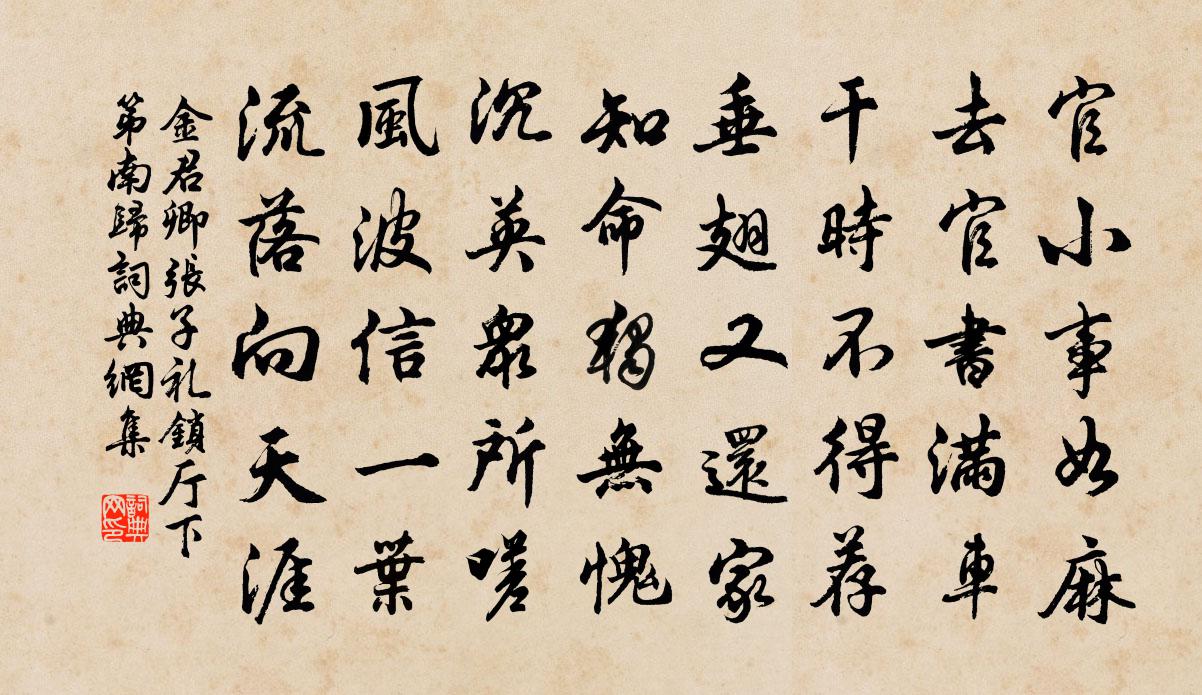 官小事如麻
去官書满車
干時不得荐
垂翅又還家
知命獨無愧
沉英衆所嗟
風波信一葉
流落向天涯
金君卿張子礼鎖厅下
第南歸詞典網集
詞典網印